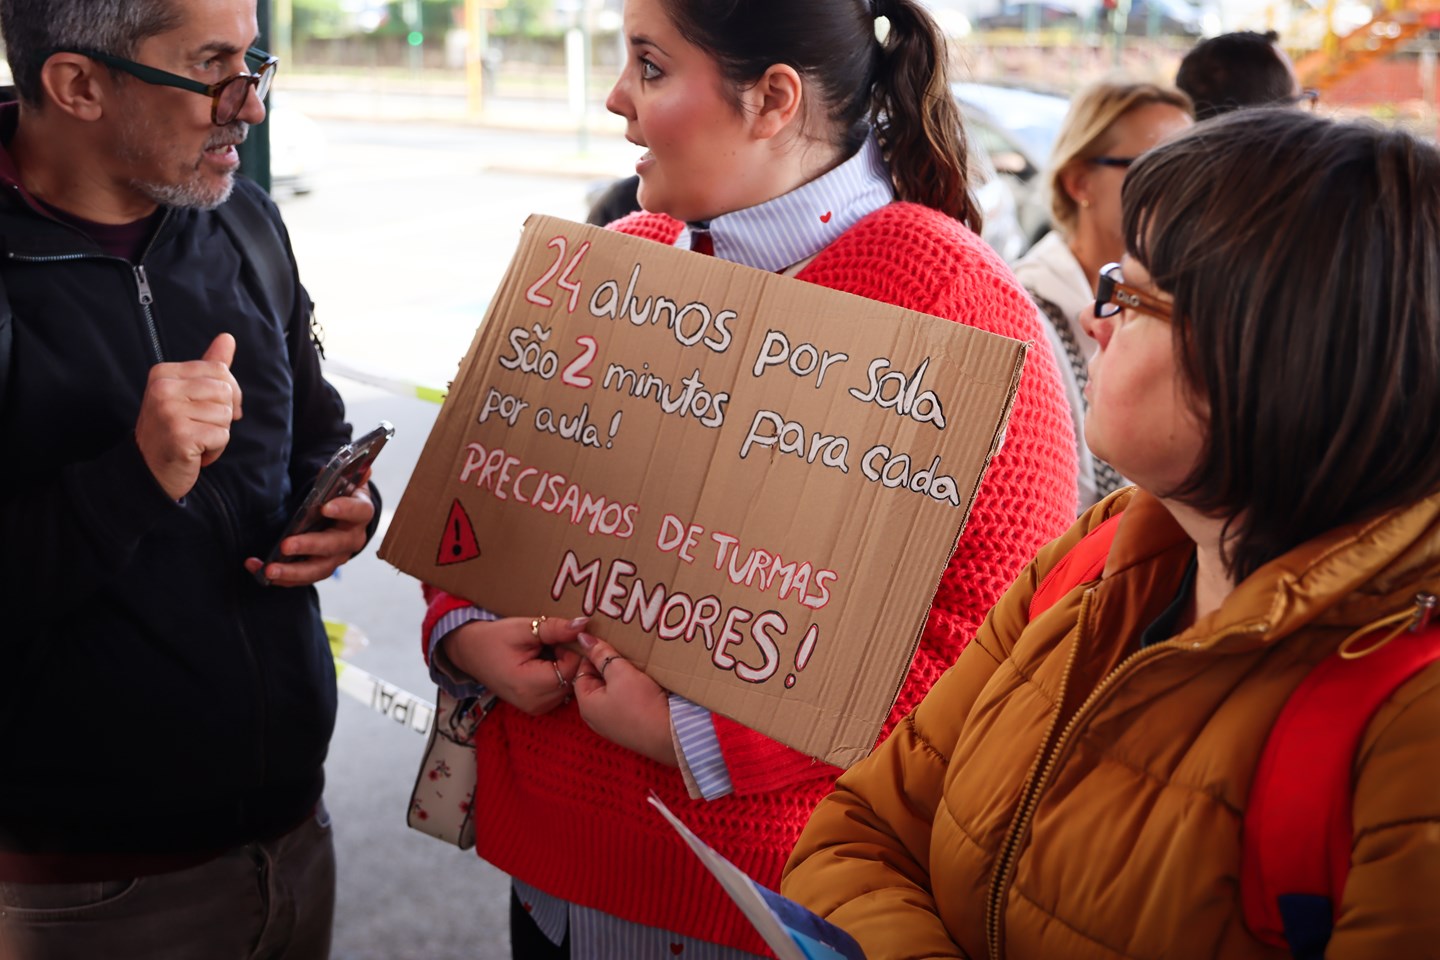 24 alunos por sala
são 2 minutos para cada
por aula!
PRECISAMOS DE TURMAS
MENORES!